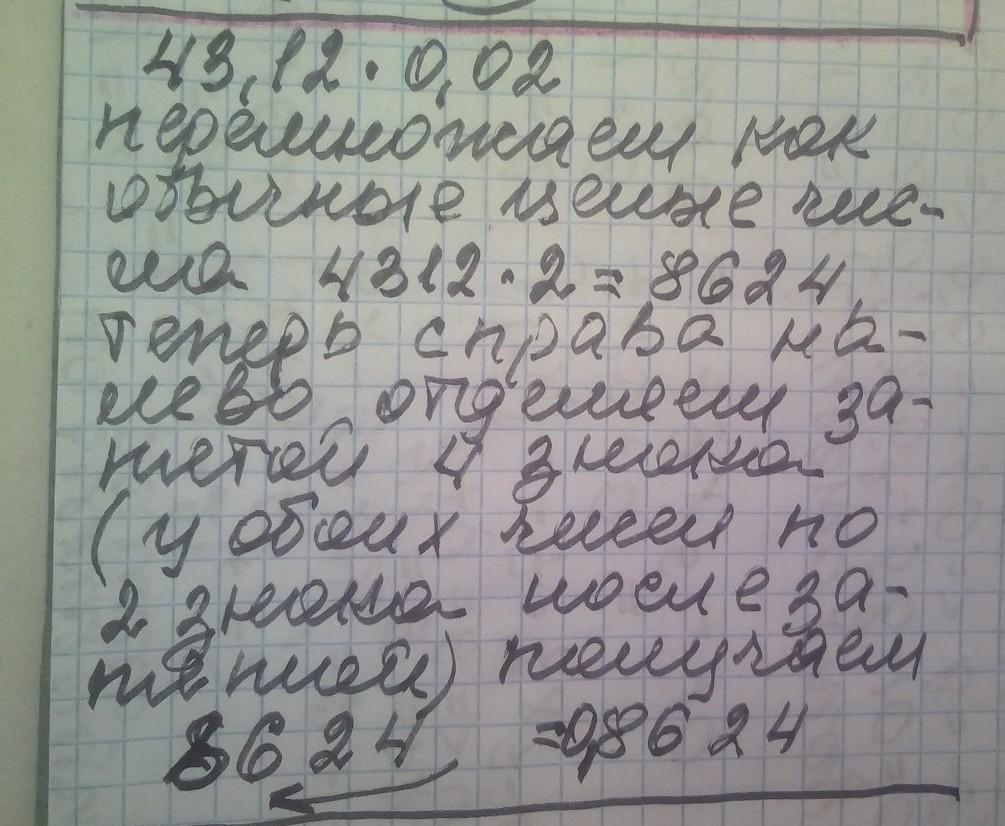 43,12 · 0,02
перемножаем как
обычные целые чис-
ла 4312 · 2 = 8624
теперь справа на-
лево отделяем за-
пятой 4 знака
(у обоих чисел по
2 знака после за-
пятой) получаем
8624 =0,8624